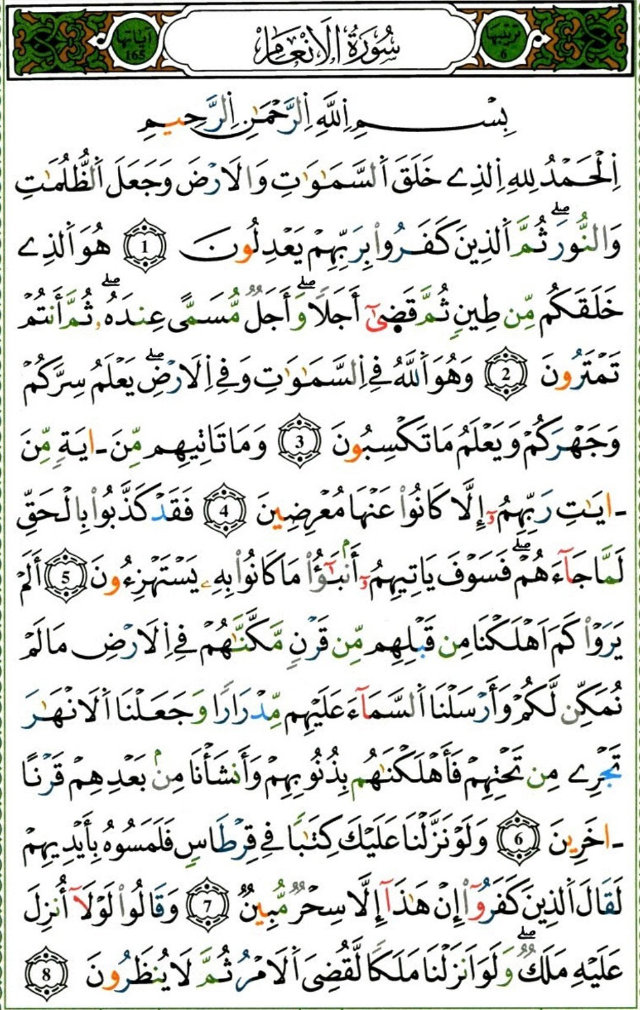 ترتيبها
6
سُورَةُ الَانْعَامِ
ءاياتها
165
بِسْمِ اِ۬للَّهِ اِ۬لرَّحْمَٰنِ اِ۬لرَّحِيمِ
اِ۬لْحَمْدُ لِلهِ اِ۬لذِے خَلَقَ اَ۬لسَّمَٰوَٰتِ وَالَارْضَ وَجَعَلَ اَ۬لظُّلُمَٰتِ
وَالنُّورَۖ ثُمَّ اَ۬لذِينَ كَفَرُواْ بِرَبِّهِمْ يَعْدِلُونَ ١ هُوَ اَ۬لذِے
خَلَقَكُم مِّن طِينٖ ثُمَّ قَض۪ىٰٓ أَجَلاٗۖ وَأَجَلٞ مُّسَمًّى عِندَهُۥۖ ثُمَّ أَنتُمْ
تَمْتَرُونَ ٢ وَهُوَ اَ۬للَّهُ فِے اِ۬لسَّمَٰوَٰتِ وَفِے اِ۬لَارْضِۖ يَعْلَمُ سِرَّكُمْ
وَجَهْرَكُمْ وَيَعْلَمُ مَا تَكْسِبُونَ ٣ وَمَا تَاتِيهِم مِّنَ ـايَةٖ مِّنَ
ـايَٰتِ رَبِّهِمُۥٓ إِلَّا كَانُواْ عَنْهَا مُعْرِضِينَ ٤ فَقَدْ كَذَّبُواْ بِالْحَقِّ
لَمَّا جَآءَهُمْۖ فَسَوْفَ يَاتِيهِمُۥٓ أَنۢبَٰٓؤُاْ مَا كَانُواْ بِهِۦ يَسْتَهْزِءُونَ ٥ أَلَمْ
يَرَوْاْ كَمَ اَهْلَكْنَا مِن قَبْلِهِم مِّن قَرْنٖ مَّكَّنَّٰهُمْ فِے اِ۬لَارْضِ مَا لَمْ
نُمَكِّن لَّكُمْ وَأَرْسَلْنَا اَ۬لسَّمَآءَ عَلَيْهِم مِّدْرَاراٗ وَجَعَلْنَا اَ۬لَانْهَٰرَ
تَجْرِے مِن تَحْتِهِمْ فَأَهْلَكْنَٰهُم بِذُنُوبِهِمْ وَأَنشَأْنَا مِنۢ بَعْدِهِمْ قَرْناً
ـاخَرِينَ ٦ وَلَوْ نَزَّلْنَا عَلَيْكَ كِتَٰباٗ فِے قِرْطَاسٖ فَلَمَسُوهُ بِأَيْدِيهِمْ
لَقَالَ اَ۬لذِينَ كَفَرُوٓاْ إِنْ هَٰذَآ إِلَّا سِحْرٞ مُّبِينٞ ٧ وَقَالُواْ لَوْلَآ أُنزِلَ
عَلَيْهِ مَلَكٞۖ وَلَوَ اَنزَلْنَا مَلَكاٗ لَّقُضِيَ اَ۬لَامْرُ ثُمَّ لَا يُنظَرُونَ ٨